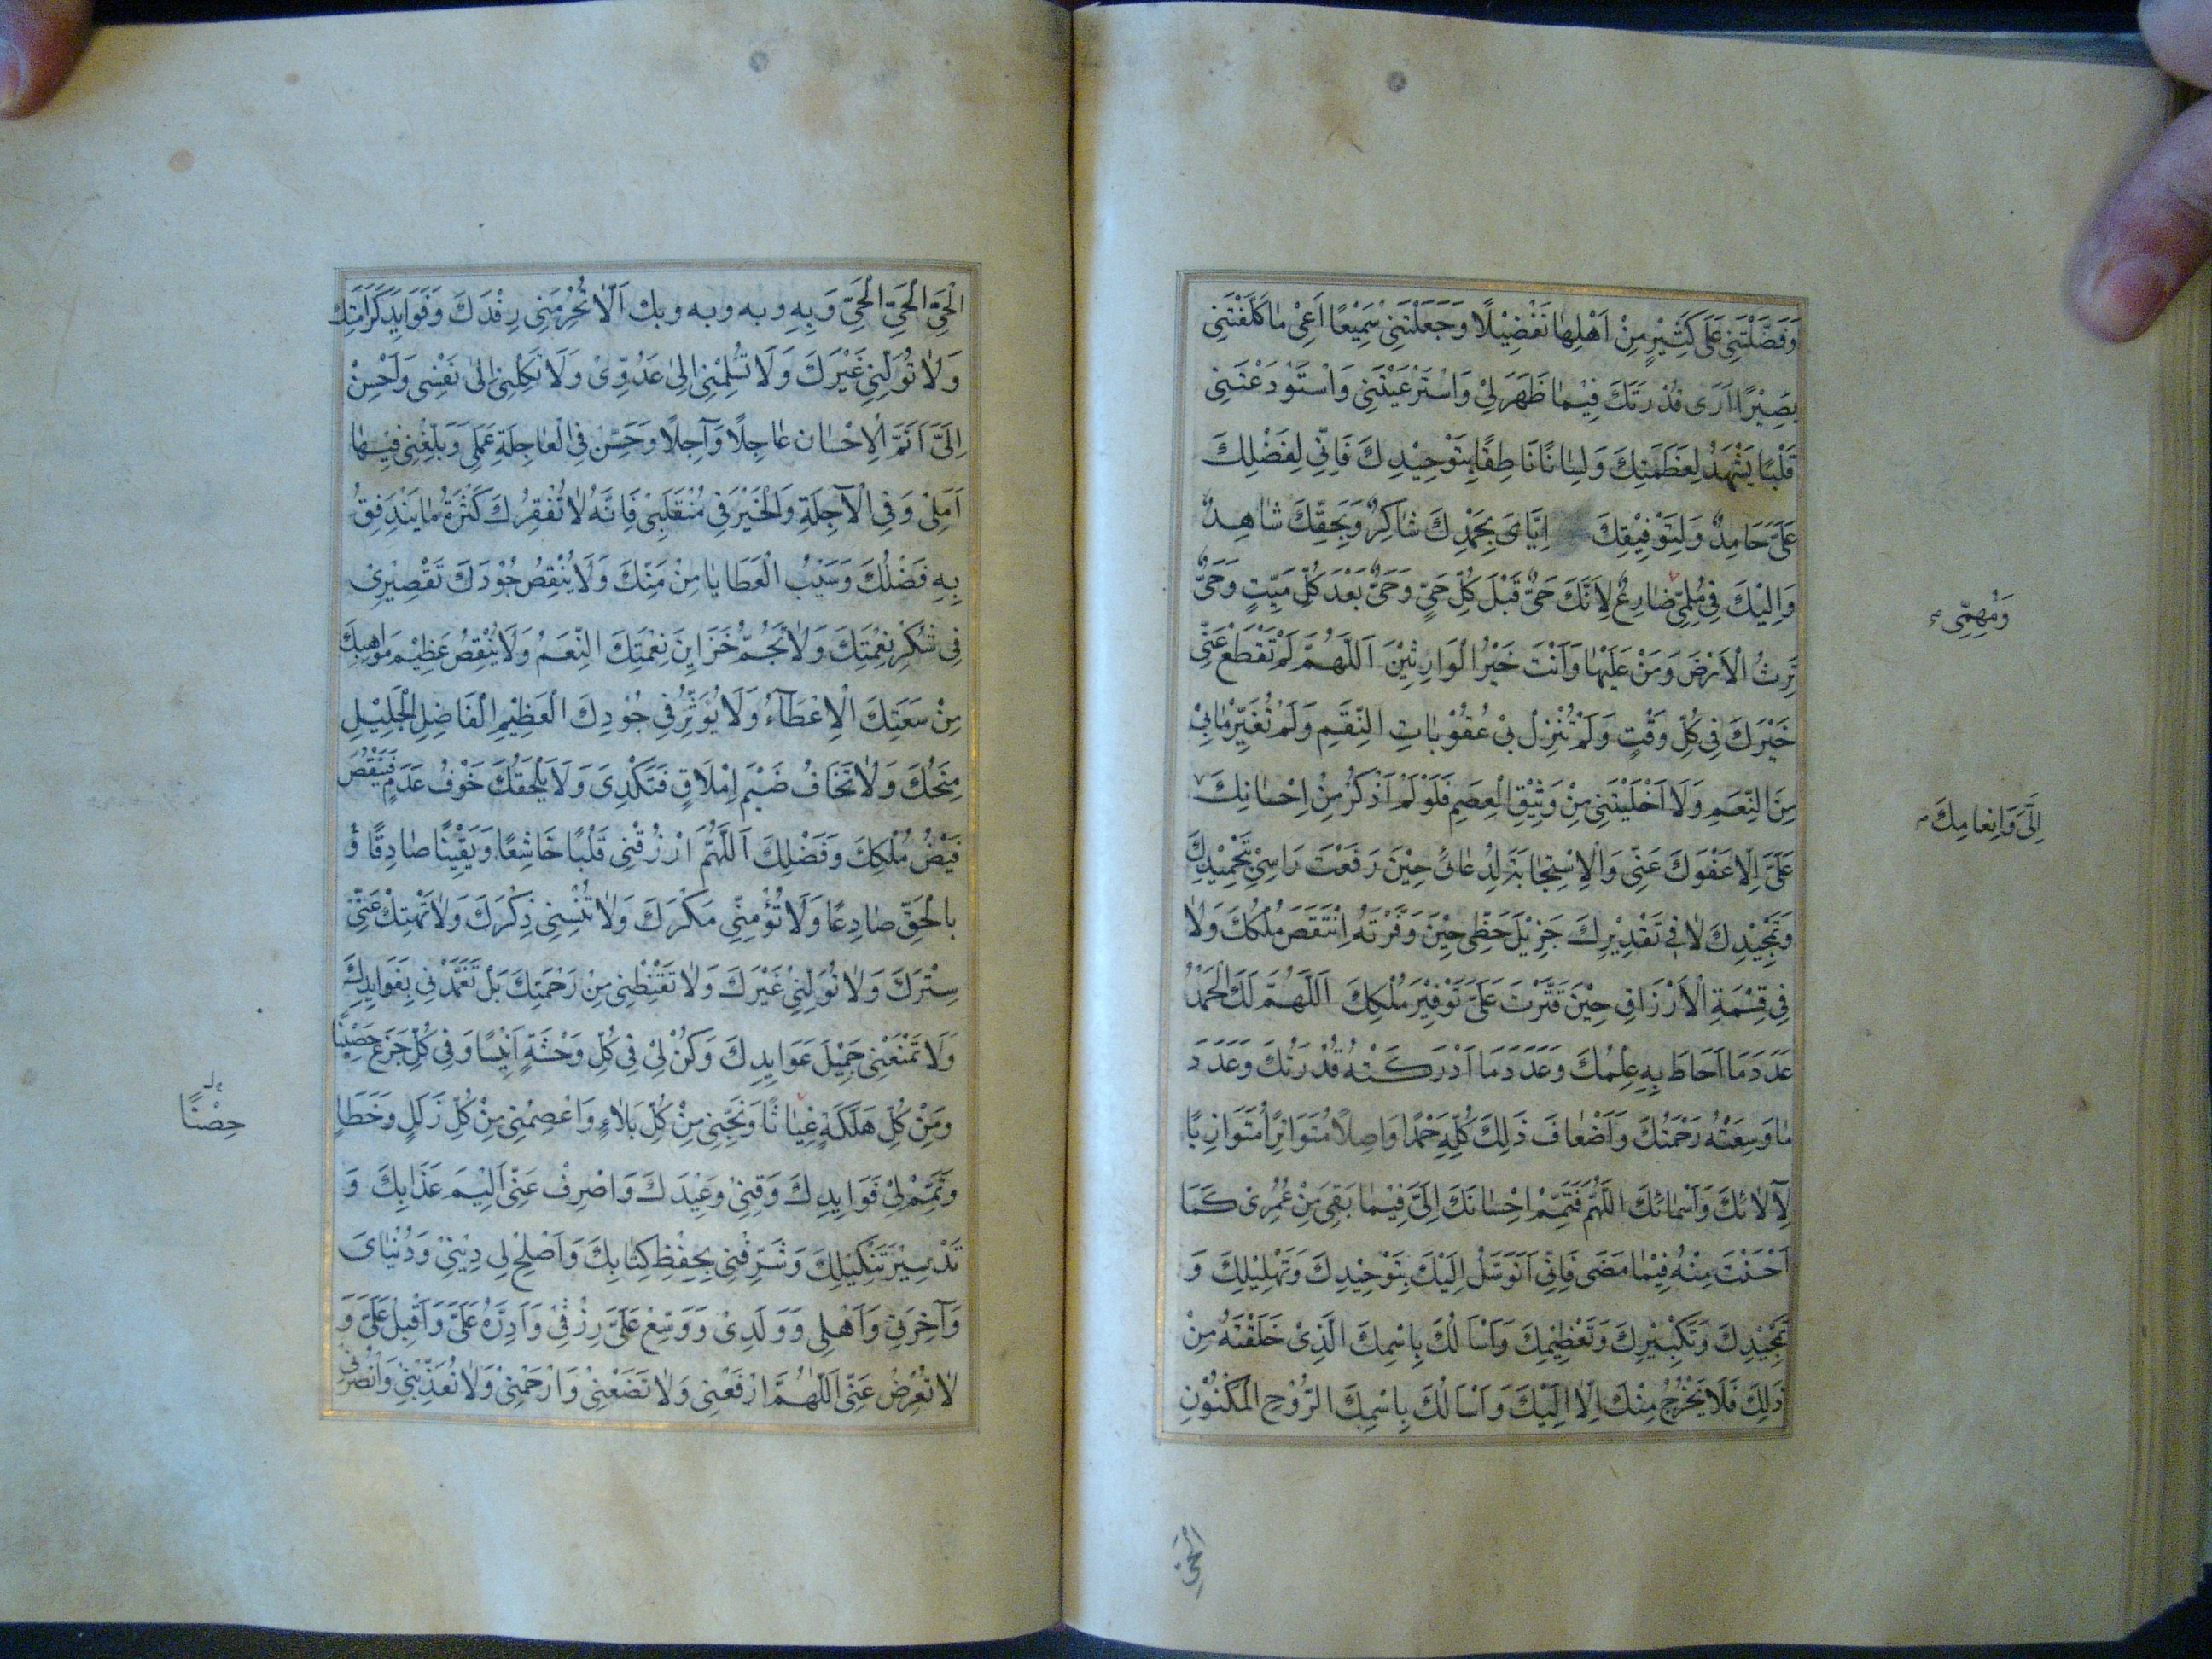 وَفَضَّلْتَنِي عَلَى كَثِيْرٍ مِنْ اَهْلِهَا تَفْضِيْلًا وَجَعَلْتَنِيْ سَمِيْعًا اَعِيْ مَا كَلَّفْتَنِي
بَصِيْرًا اَرَى قُدْرَتَكَ فِيْمَا ظَهَرَ لِيْ وَاسْتَرْعَيْتَنِي وَاسْتَوْدَعْتَنِي
قَلْبًا يَشْهَدُ لِعَظَمَتِكَ وَلِسَانًا نَاطِقًا بِتَوْحِيْدِكَ فَاِنِّي لِفَضْلِكَ
عَلَيَّ حَامِدٌ وَلِتَوْفِيْقِكَ اِيَّايَ بِحَمْدِكَ شَاكِرٌ وَبِحَقِّكَ شَاهِدٌ
وَاِلَيْكَ فِي مُلِمِّيْ ضَارِعٌ لِاَنَّكَ حَيٌّ قَبْلَ كُلِّ حَيٍّ وَحَيٌّ بَعْدَ كُلِّ مَيِّتٍ وَحَيٌّ
وَمُهِمِّي
تَرِثُ الْاَرْضَ وَمَنْ عَلَيْهَا وَاَنْتَ خَيْرُ الْوَارِثِيْنَ اَللَّهُمَّ لَمْ تَقْطَعْ عَنِّي
خَيْرَكَ فِي كُلِّ وَقْتٍ وَلَمْ تُنْزِلْ بِيْ عُقُوْبَاتِ النِّقَمِ وَلَمْ تُغَيِّرْ مَا بِيْ
مِنَ النِّعَمِ وَلَا اَخْلَيْتَنِي مِنْ وَثِيْقِ الْعِصَمِ فَلَوْ لَمْ اَذْكُرْ مِنْ اِحْسَانِكَ
اِلَيَّ وَاِنعامِكَ
عَلَيَّ اِلَّا عَفْوَكَ عَنِّي وَالْاِسْتِجَابَةَ لِدُعَائِي حِيْنَ رَفَعْتَ رَاسِيْ بِتَحْمِيْدِكَ
وَتَمْجِيْدِكَ لَا فِي تَقْدِيْرِكَ جَزِيْلَ حَظِّي حِيْنَ وَفَّرْتَهُ اِنْتَقَصَ مُلْكُكَ وَلَا
فِي قِسْمَةِ الْاَرْزَاقِ حِيْنَ قَتَّرْتَ عَلَيَّ تَوْفِيْرَ مُلْكِكَ اَللَّهُمَّ لَكَ الْحَمْدُ
عَدَدَ مَا اَحَاطَ بِهِ عِلْمُكَ وَعَدَدَ مَا اَدْرَكَتْهُ قُدْرَتُكَ وَعَدَدَ
مَا وَسِعَتْهُ رَحْمَتُكَ وَاَضْعَافَ ذَلِكَ كُلِّهِ حَمْدًا وَاصِلًا مُتَوَاتِرًا مُتَوَازِيًا
لِآلَائِكَ وَاَسْمَائِكَ اللَّهُمَّ فَتَمِّمْ اِحْسَانَكَ اِلَيَّ فِيْمَا بَقِيَ مِنْ عُمُرِي كَمَا
اَحْسَنْتَ مِنْهُ فِيْمَا مَضَى فَاِنِّي اَتَوَسَّلُ اِلَيْكَ بِتَوْحِيْدِكَ وَتَهْلِيْلِكَ وَ
تَمْجِيْدِكَ وَتَكْبِيْرِكَ وَتَعْظِيْمِكَ وَاَسْاَلُكَ بِاسْمِكَ الَّذِيْ خَلَقْتَهُ مِنْ
ذَلِكَ فَلَا يَخْرُجُ مِنْكَ اِلَّا اِلَيْكَ وَاَسْاَلُكَ بِاسْمِكَ الرُّوْحِ الْمَكْنُوْنِ
الْحَيِّ
الْحَيِّ الْحَيِّ الْحَيِّ وَبِهِ وبه وبه وبك اَلَّا تَحْرِمَنِي رِفْدَكَ وَفَوَايِدَ كَرَامَتِكَ
وَلَا تُوَلِّنِي غَيْرَكَ وَلَا تُسْلِمْنِي اِلَى عَدُوِّيْ وَلَا تَكِلْنِي اِلَى نَفْسِي وَاَحْسِنْ
اِلَيَّ اَتَمَّ الْاِحْسَانِ عَاجِلًا وَآجِلًا وَحَسِّنْ فِي الْعَاجِلَةِ عَمَلِي وَبَلِّغْنِي فِيْهَا
اَمَلِيْ وَفِي الْآجِلَةِ وَالْخَيْرَ فِي مُنْقَلَبِيْ فَاِنَّهُ لَا تُفْقِرُكَ كَثْرَةُ مَا يَنْدَفِقُ
بِهِ فَضْلُكَ وَسَيْبُ الْعَطَايَا مِنْ مَنِّكَ وَلَا يُنْقِصُ جُوْدَكَ تَقْصِيْرِيْ
فِي شُكْرِ نِعْمَتِكَ وَلَا تُجِمُّ خَزَايِنَ نِعْمَتِكَ النِّعَمُ وَلَا يُنْقِصُ عَظِيْمَ مَوَاهِبِكَ
مِنْ سَعَتِكَ الْاِعْطَآءُ وَلَا يُؤَثِّرُ فِي جُوْدِكَ الْعَظِيْمِ الْفَاضِلِ الْجَلِيْلِ
مِنَحُكَ وَلَا تَخَافُ ضَيْمَ اِمْلَاقٍ فَتُكْدِيَ وَلَا يَلْحَقُكَ خَوْفُ عَدَمٍ فَيَنْقُصَ
فَيْضُ مُلْكِكَ وَفَضْلِكَ اَللَّهُمَّ ارْزُقْنِي قَلْبًا خَاشِعًا وَيَقِيْنًا صَادِقًا وَ
بِالْحَقِّ صَادِعًا وَلَا تُؤْمِنِّي مَكْرَكَ وَلَا تُنْسِنِي ذِكْرَكَ وَلَا تَهْتِكْ عَنِّيْ
سِتْرَكَ وَلَا تُوَلِّنِيْ غَيْرَكَ وَلَا تَقْنِطْنِي مِنْ رَحْمَتِكَ بَلْ تَغَمَّدْنِي بِفَوَايِدِكَ
وَلَا تَمْنَعْنِي جَمِيْلَ عَوَايِدِكَ وَكُنْ لِيْ فِي كُلِّ وَحْشَةٍ اَنِيْسًا وَفِي كُلِّ جَزَعٍ حَصْيِنًا
وَمِنْ كُلِّ هَلَكَةٍ غِيَاثًا وَنَجِّنِي مِنْ كُلِّ بَلَاءٍ وَاعْصِمْنِي مِنْ كُلِّ زَلَلٍ وَخَطَاءٍ
حِصْنًا
وَتَمِّمْ لِيْ فَوَايِدِكَ وَقِنِيْ وَعِيْدَكَ وَاصْرِفْ عَنِّي اَلِيْمَ عَذَابِكَ وَ
تَدْمِيْرَ تَنْكِيْلِكَ وَشَرِّفْنِي بِحِفْظِ كِتَابِكَ وَاَصْلِحْ لِي دِيْنِيْ وَدُنْيَايَ
وَآخِرَتِيْ وَاَهْلِي وَوَلَدِيْ وَوَسِّعْ عَلَيَّ رِزْقِيْ وَاَدِرَّهُ عَلَيَّ وَاَقْبِلْ عَلَيَّ وَ
لَا تُعْرِضْ عَنِّي اَللَّهُمَّ ارْفَعْنِي وَلَا تَضَعْنِيْ وَارْحَمْنِيْ وَلَا تُعَذِّبْنِيْ وَانْصُرْنِي